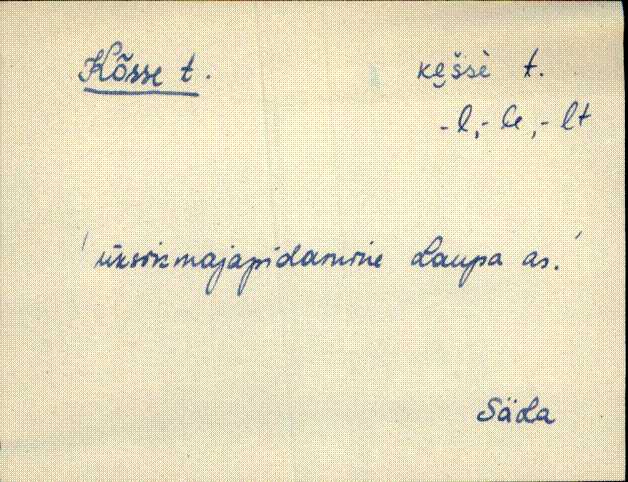 Kõsse t. ke̮šsè t.
-l, -le, -lt
'üksikmajapidamine Laupa as.'
Säda